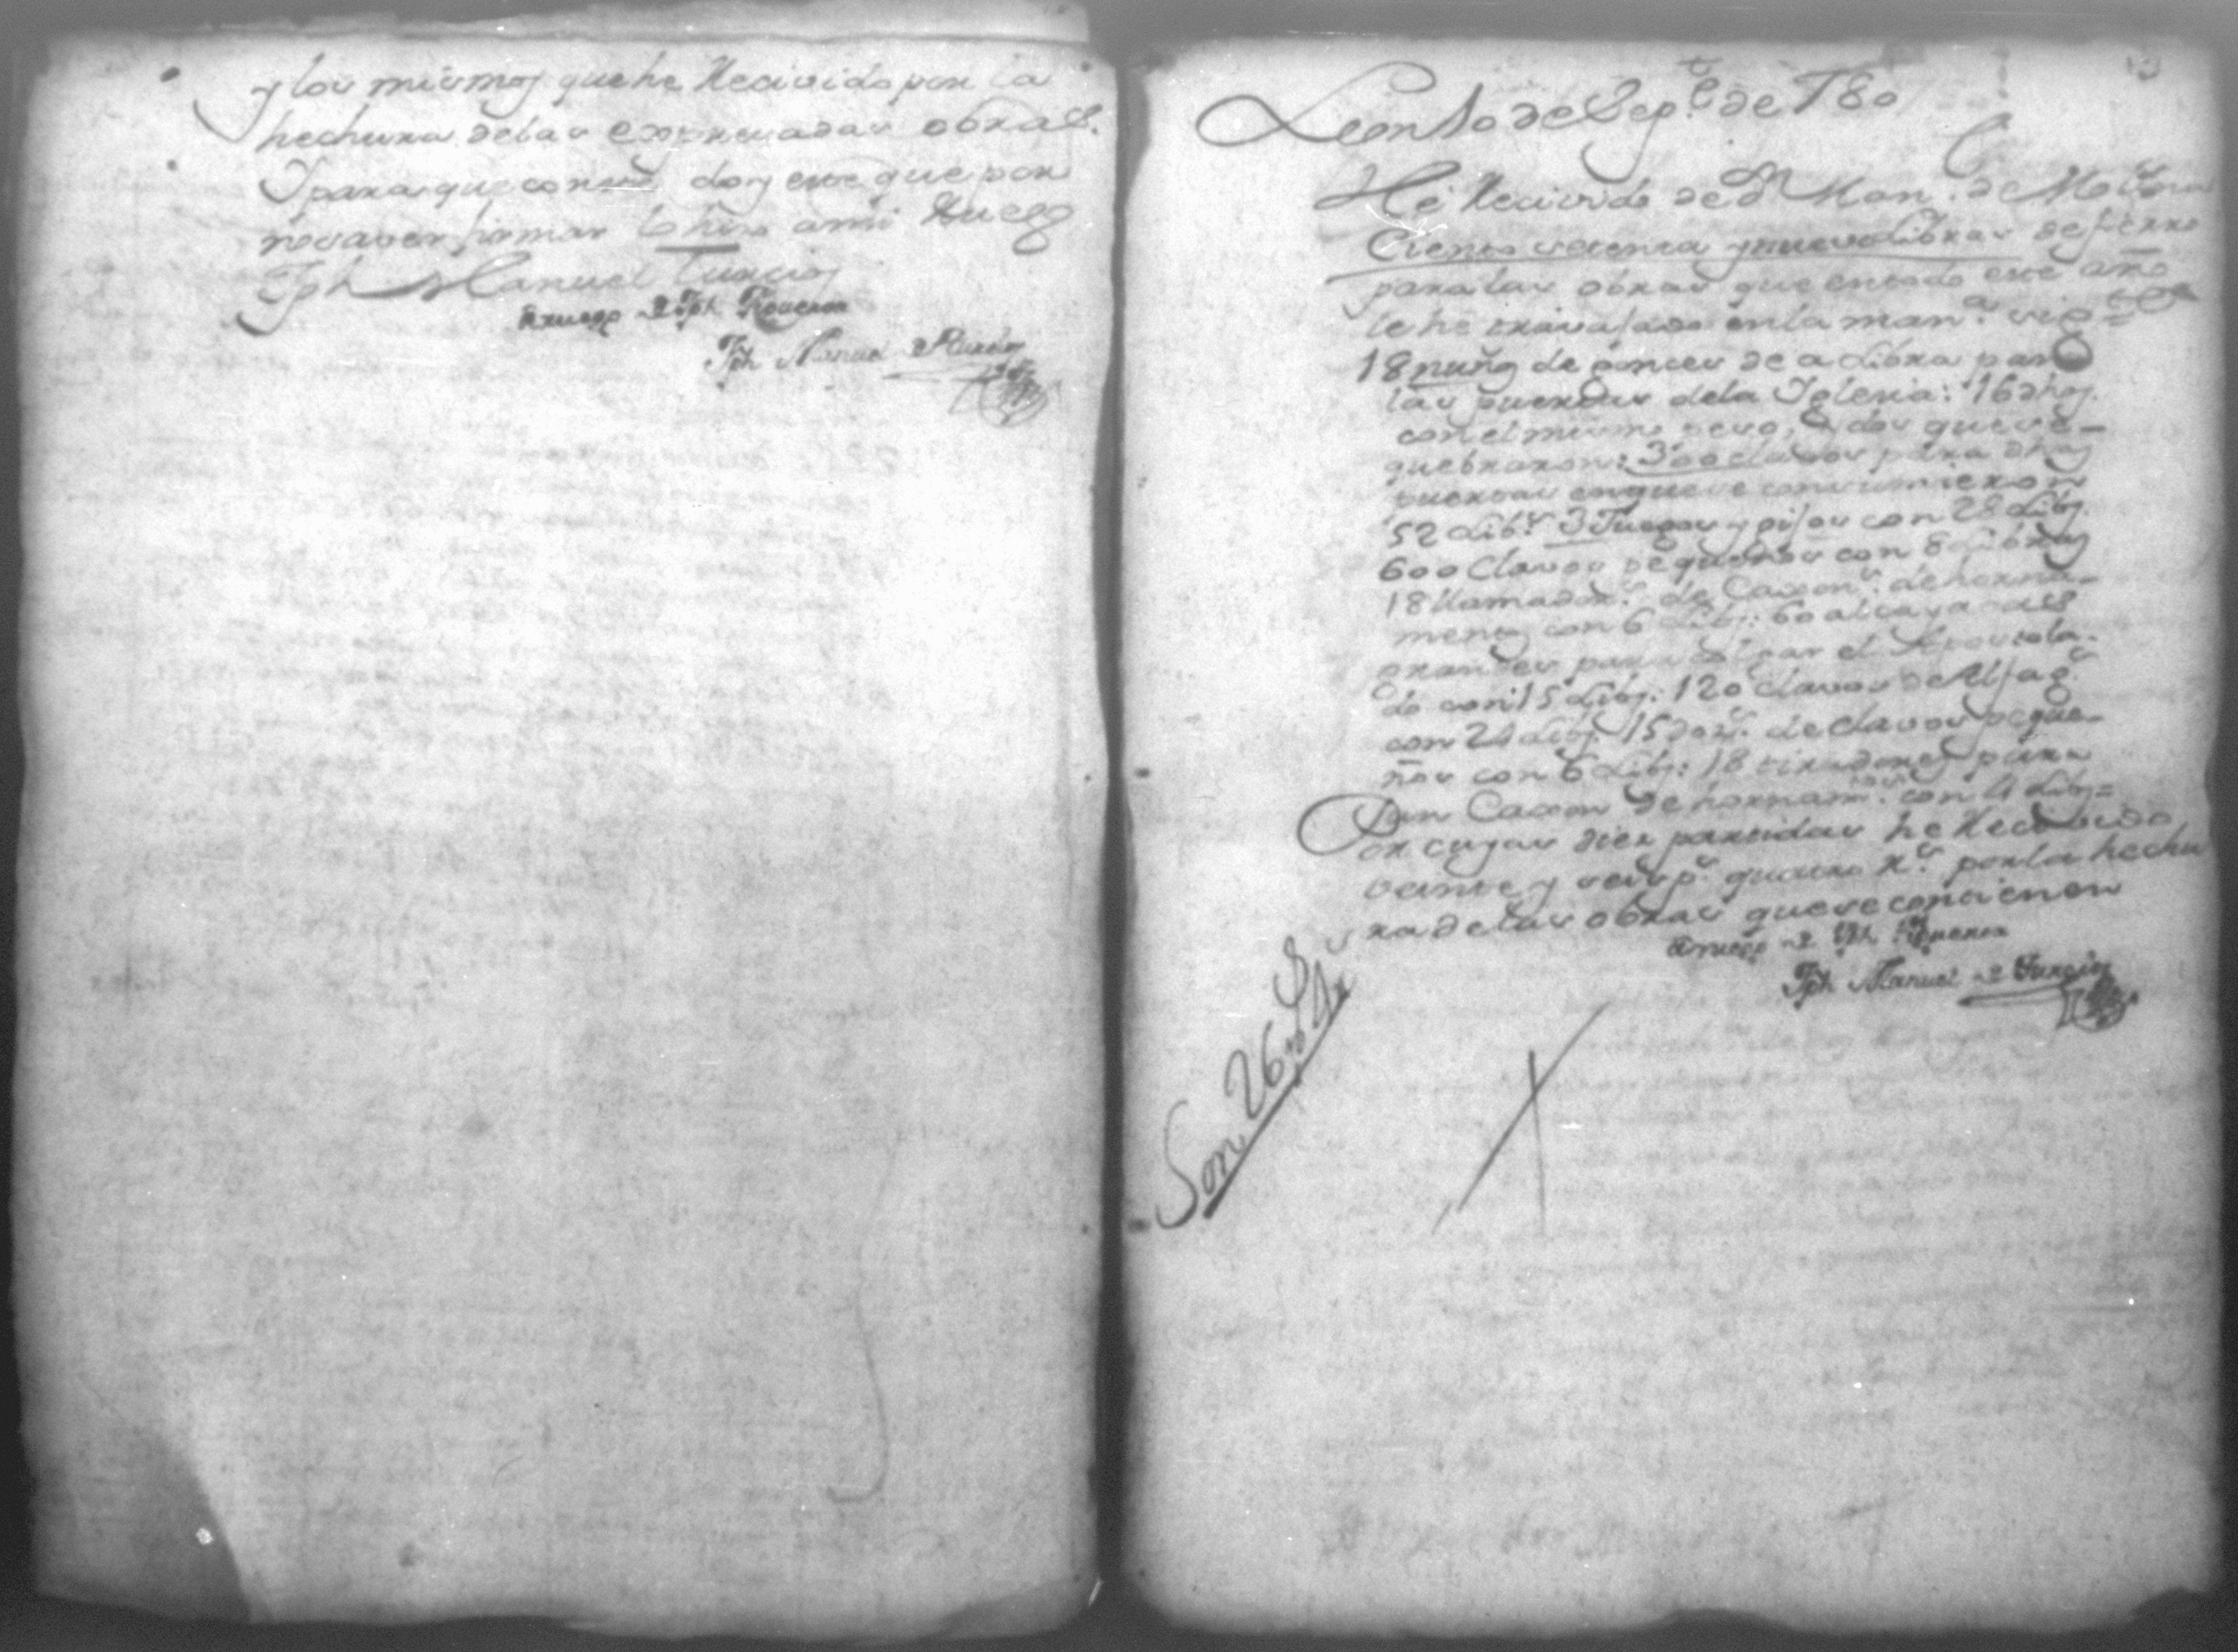 y los mismos que he Recivido por la
hechura de las expresadas obras.
I para que conste doy este que por
no saver firmar lo hiso a mi Ruego
Jph Manuel Turcios
Aruego de Jph Figueroa
Jph Manuel de Turcios
Leon 10 de Sepe. de 780
He Recivido de Dn Man. de Molina
Ciento setenta y nueve Libras de fierro
para las obras que en todo este año
le he travajado en la man.a sigte=
18 de gonces de a Libra para
las puertas dela Iglesia: 16 dhos.
con el mismo peso, dos que se-
quebraron: 300 clavos para dhas
puertas en que se consumieron
52 Libs. 3 Juegos con 28 Libs.
600 Clavos pequeños con 8 Libras
18 llamadors. de Caxons. de horna-
mentos con 6 Libs: 60 alcayatas
grandes para colgar el Apostola-
do con 15 Libs: 120 clavos de
con 24 Libs. 15 dozs. de clavos peque-
ños con 6 Libs: 18 tiradores para
un Caxon de hornamtos. con 4 Libs=
Por cuyas diez partidas he Recivido
veinte y seis ps. quatro Rs. por la hechu
ra delas obras que se contienen
Aruego de Jph Figueroa
Jph Manuel de Turcios
Son 26 ps 4 rs